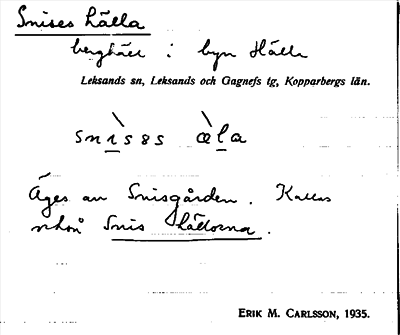 Snises hälla
berghäll i byn Hälla
Leksands sn, Leksands och Gagnefs tg, Kopparbergs län.
snìsəs æ̀la
Äges av Snisgården. Kallas
också Snis hällorna.
ERIK M. CARLSSON, 1935.